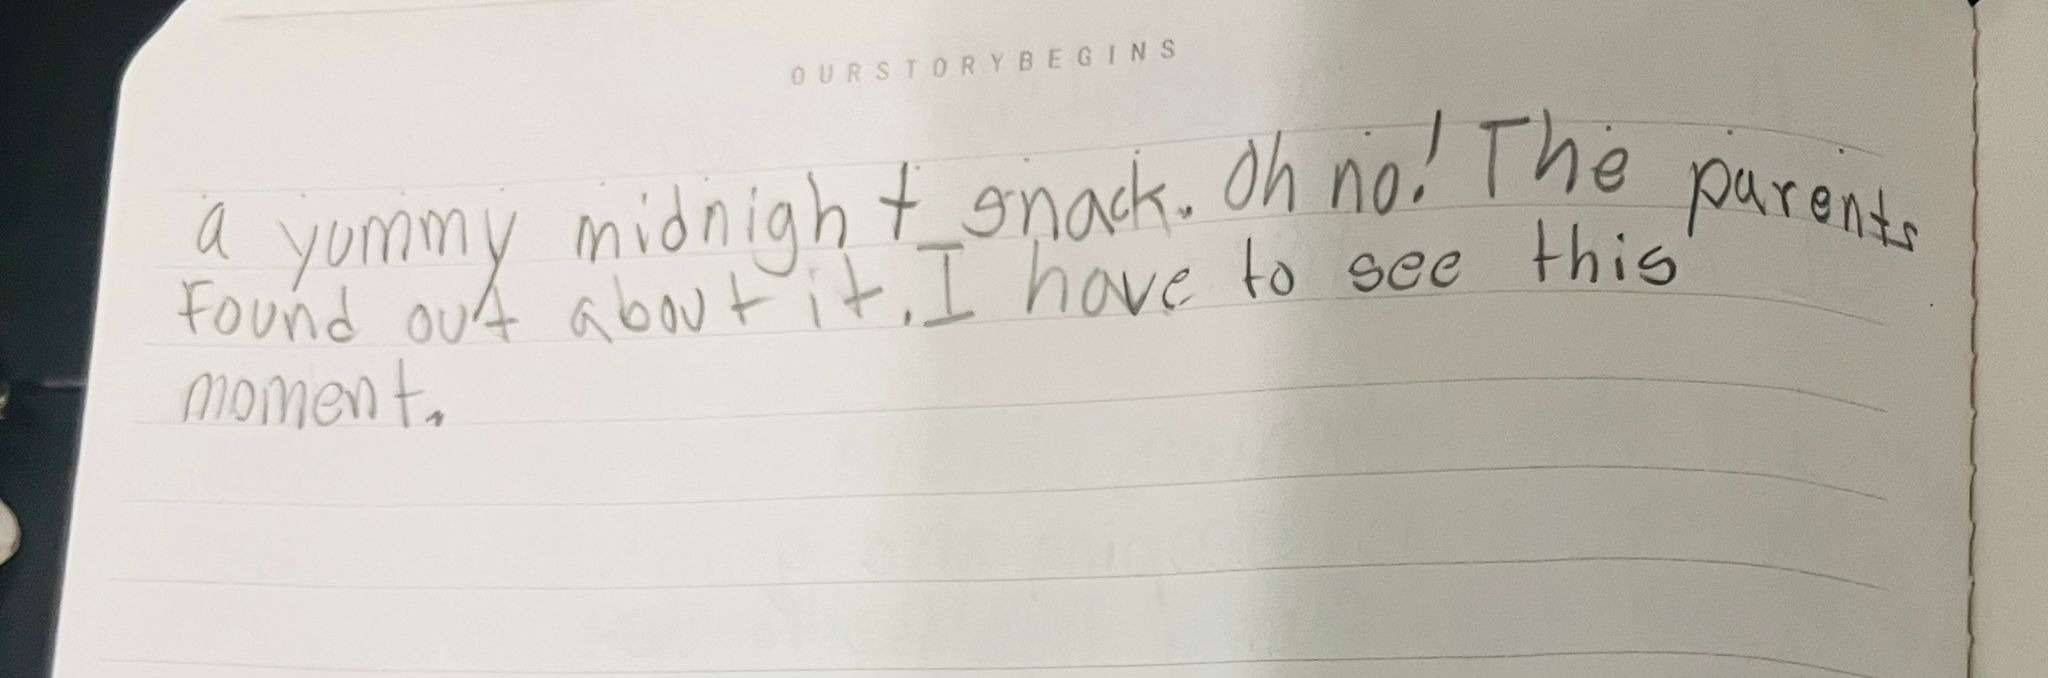 OURSTORYBEGINS
a yummy midnight snack. Oh no! The parents
Found out about it. I have to see this
moment.